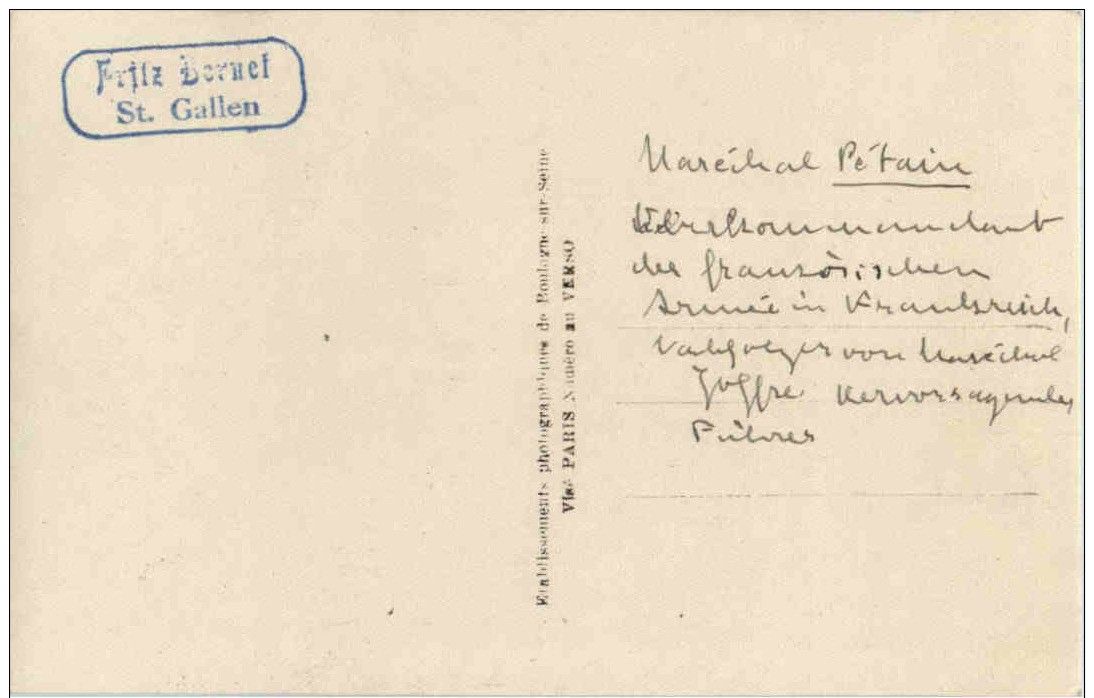 Fritz Bernet
St. Gallen
Etablissements photographiques de Boulogne-sur-Seine
Visé PARIS Numéro au VERSO
Maréchal Pétain
der französischen
Armée in Frankreich,
Nachfolger von Maréchal
Joffre. Hervorragender
Führer